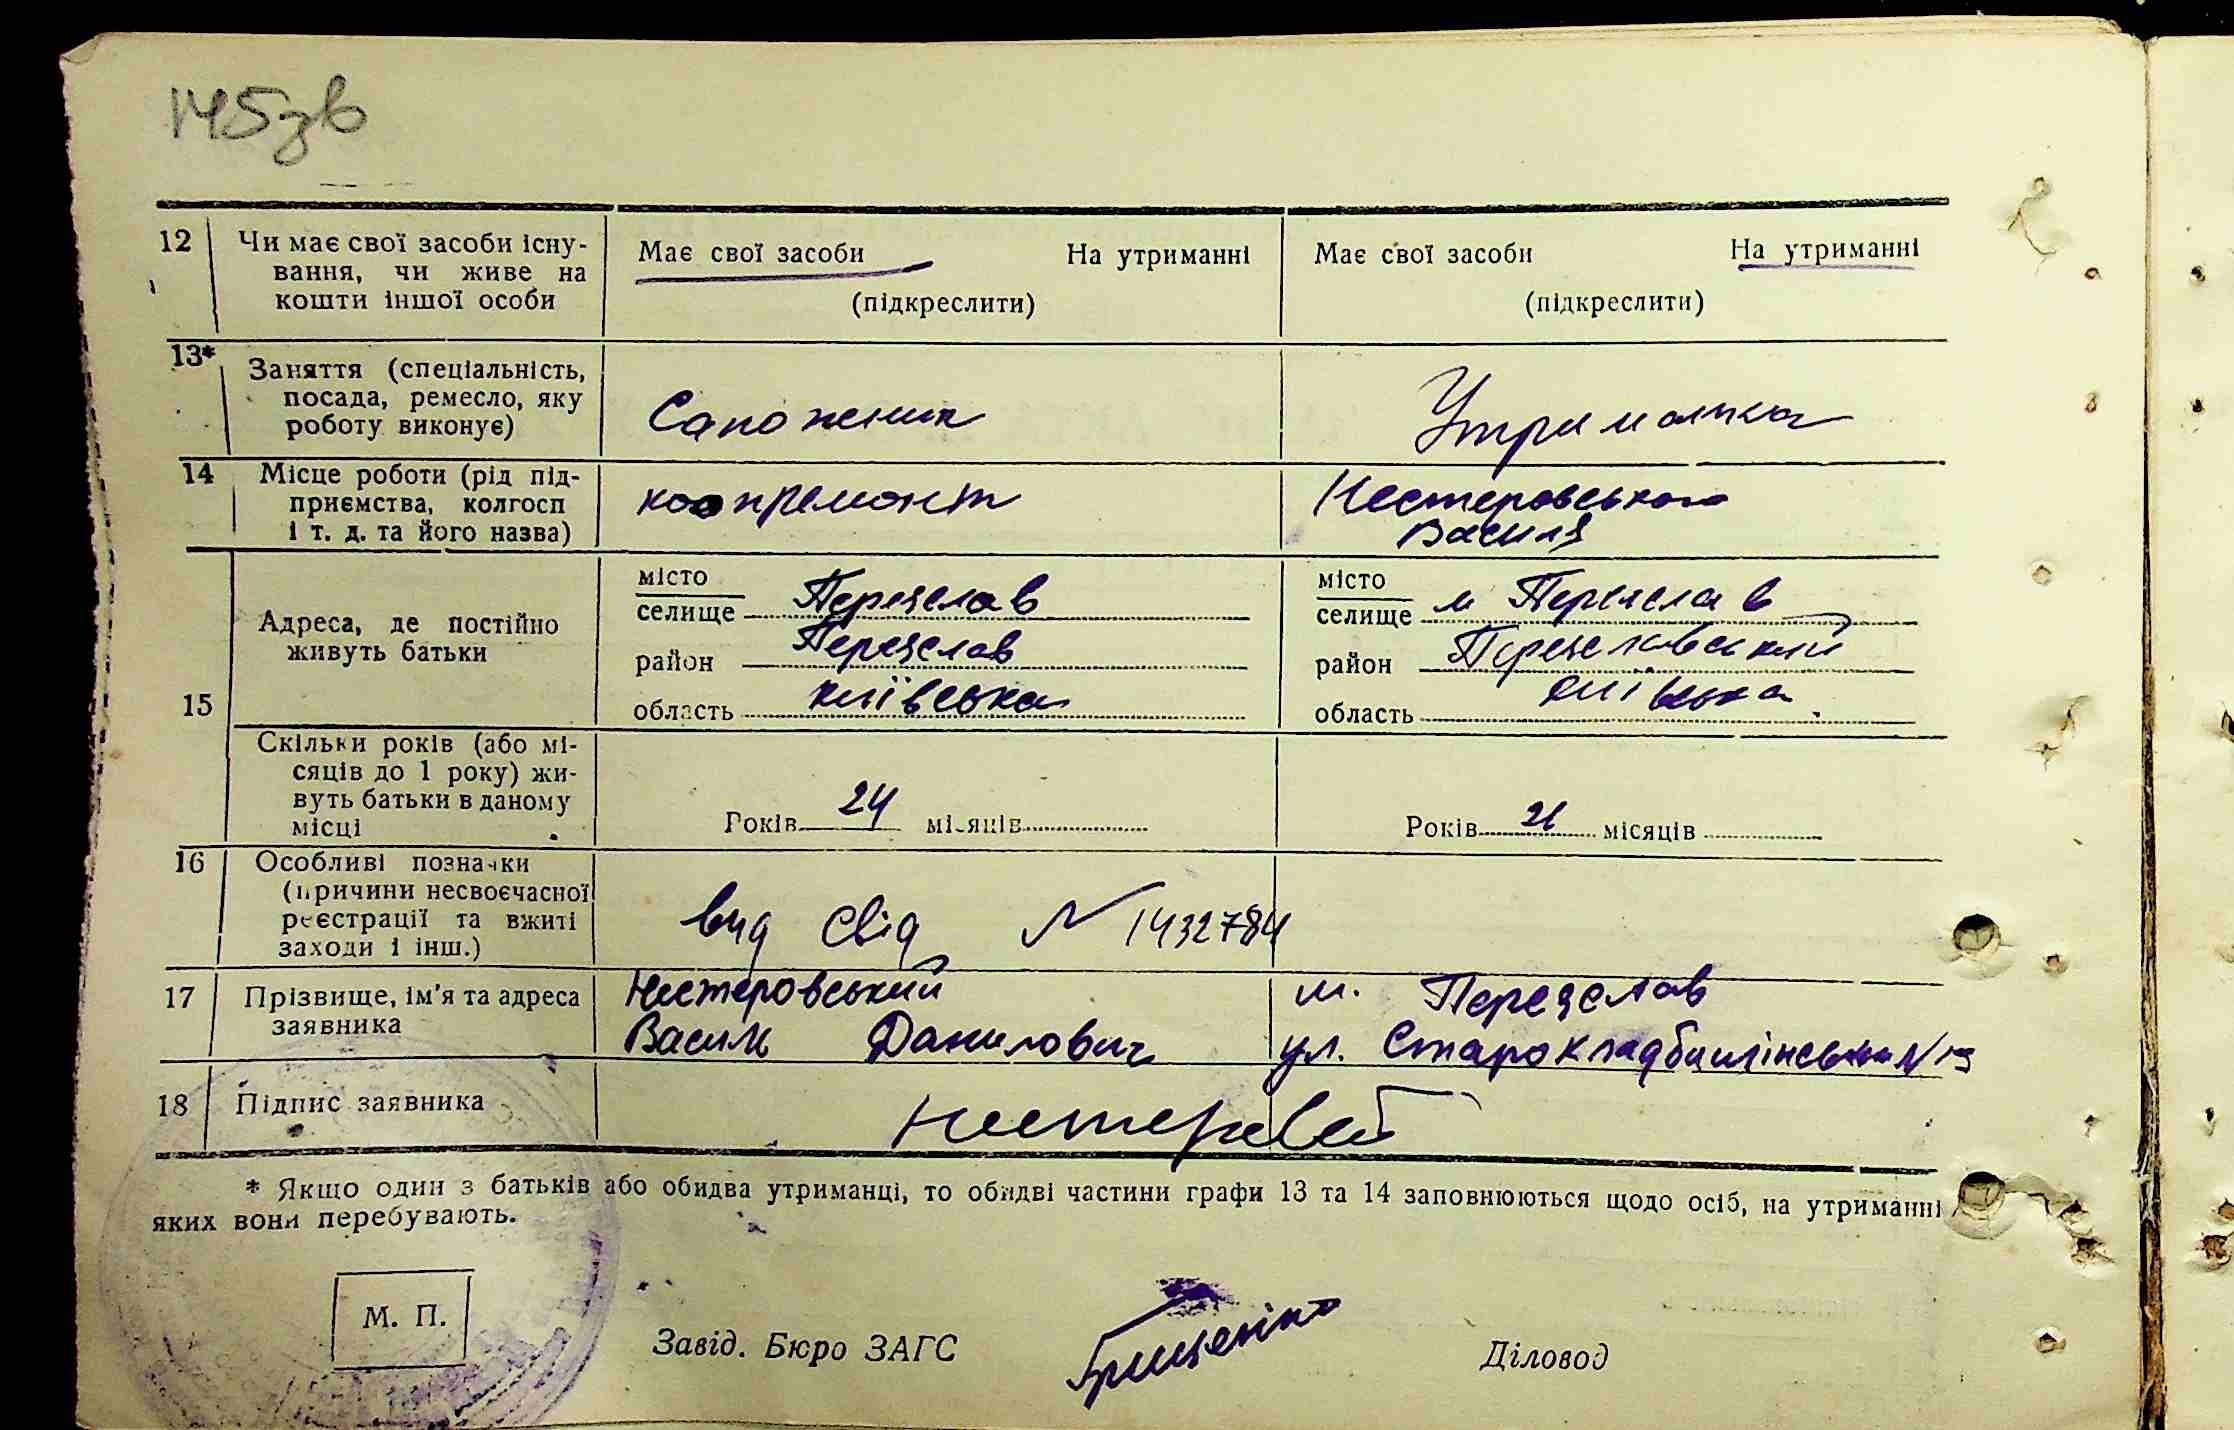 145зв
12 Чи має свої засоби існу-
вання, чи живе на
кошти іншої особи
Має свої засоби На утриманні
(підкреслити)
Має свої засоби На утриманні
(підкреслити)
13* Заняття (спеціальність,
посада, ремесло, яку
роботу виконує)
Сапожник
Утриманка
14 Місце роботи (рід під-
приємства, колгосп
і т. д. та його назва)
коопремонт
Нестеровського
Василя
15
Адреса, де постійно
живуть батьки
місто
селище Переяслав
район Переяслав
область київська
місто
селище м Переяслав
район Переяславський
область київська
Скільки років (або мі-
сяців до 1 року) жи-
вуть батьки в даному
місці
Років 24 місяців
Років 21 місяців
16 Особливі позначки
(причини несвоєчасної
реєстрації та вжиті
заходи і інш.)
вид свід N 1432784
17 Прізвище, ім'я та адреса
заявника
Нестеровський
Василь Данилович
м. Переяслав
ул. Старокладбищінська N
18 Підпис заявника
* Якщо один з батьків або обидва утриманці, то обидві частини графи 13 та 14 заповнюються щодо осіб, на утриманні
яких вони перебувають.
М. П.
Завід. Бюро ЗАГС Грищенко Діловод